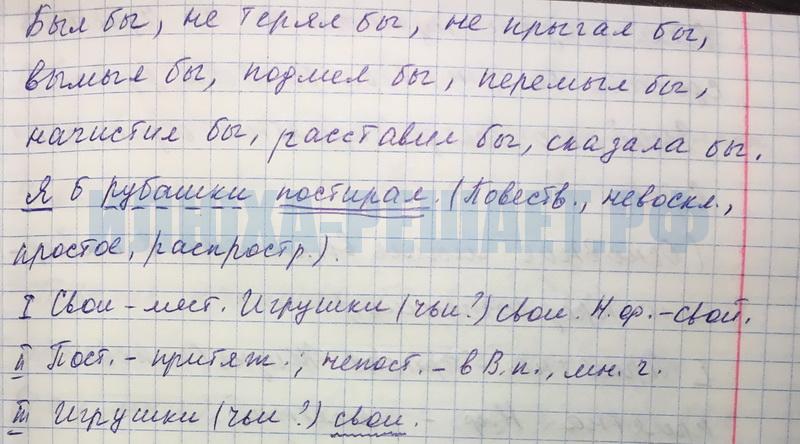 Был бы, не терял бы, не прыгал бы,
вымыл бы, подмел бы, перемыл бы,
начистил бы, расставил бы, сказала бы.
Я б рубашки постирал. (Повеств., невоскл.,
простое, распростр.).
I Свои - мест. Игрушки (чьи?) свои. Н.ф. - свой.
II Пост. - притяж.; непост. - в В.п., мн. ч.
III Игрушки (чьи?) свои.
ИЛЮХА-РЕШАЕТ.РФ